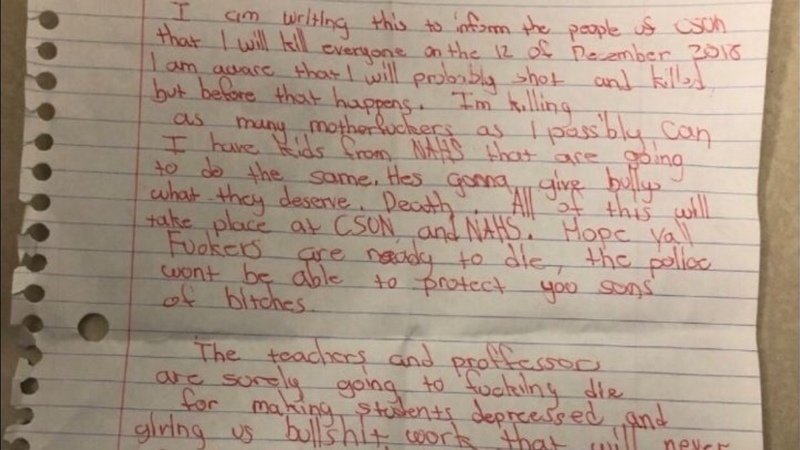 I am writing this to inform the people of CSUN
that I will kill everyone on the 12 of December 2018
I am aware that I will probably shot and killed,
but before that happens. I'm killing
as many motherfuckers as I possibly can
I have kids from NAHS that are going
to do the same. Hes gonna give bullys
what they deserve. Death. All of this will
take place at CSUN, and NAHS. Hope yall
Fuckers are ready to die, the police
wont be able to protect you sons
of bitches.
The teachers and proffessors
are surely going to fucking die
for making students deprcessed, and
giving us bullshit work that will never